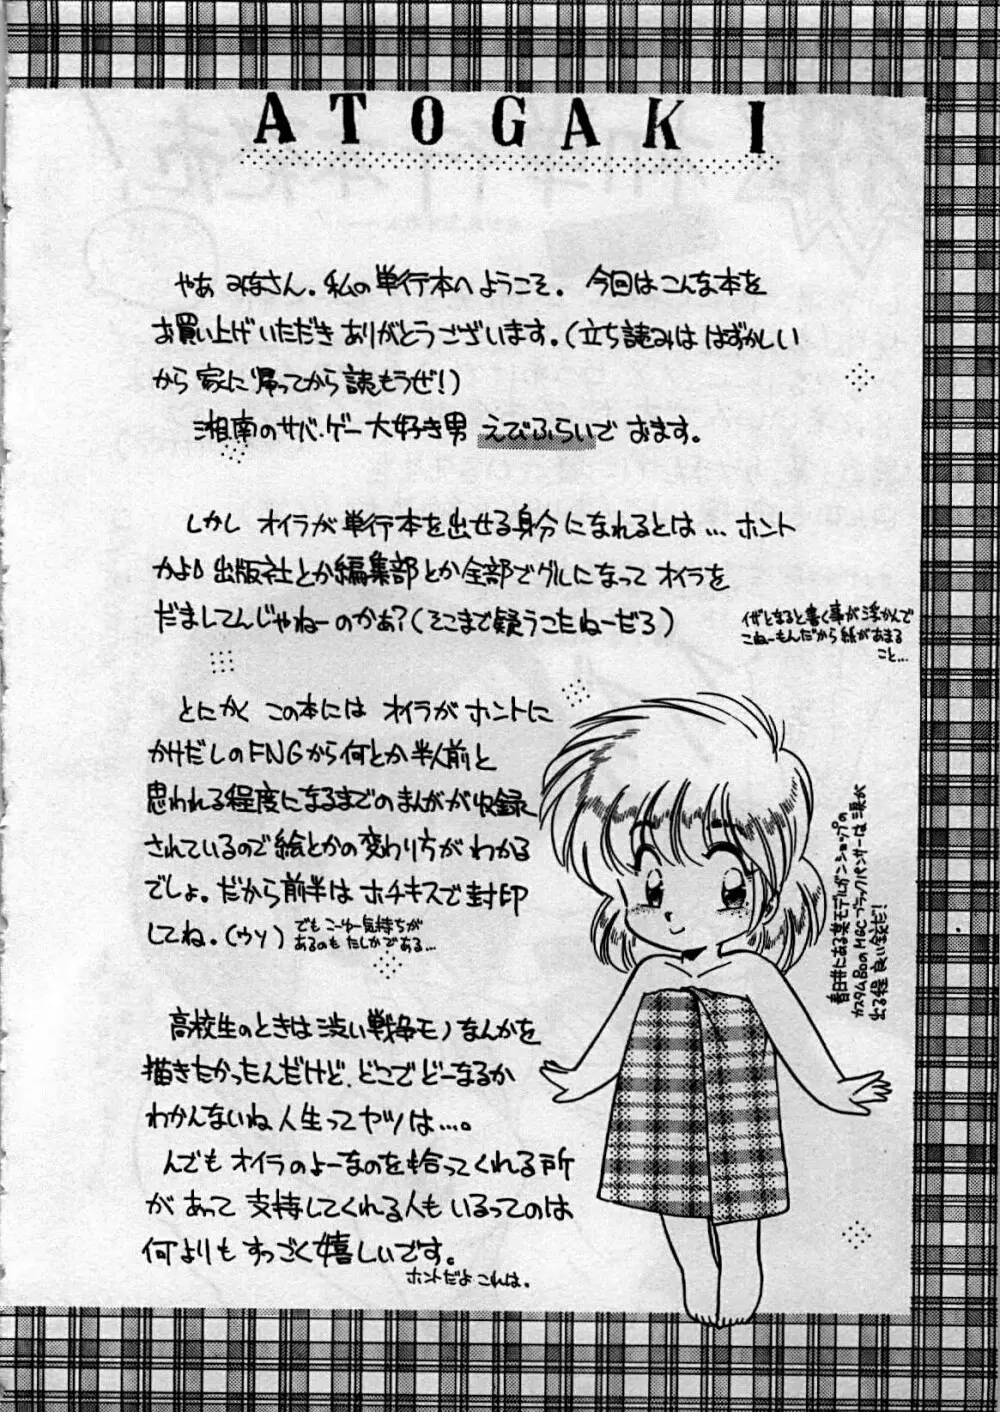 ATOGAKI
やあ みなさん。私の単行本へようこそ。今回はこんな本を
お買い上げいただきありがとうございます。(立ち読みははずかしい
から家に帰ってから読もうぜ!)
湘南のサバ・ゲー大好き男 えびふらいでおます。
しかし オイラが単行本を出せる身分になれるとは…ホント
かよ 出版社とか編集部とか全部でグルになって オイラを
だましてんじゃねーのかぁ?(そこまで疑うこたねーだろ)
イザとなると書く事が浮かんで
こねーもんだから紙があまる
こと…
とにかく この本には オイラがホントに
かけだしのFNGから何とか半人前と
思われる程度になるまでのまんがが収録
されているので絵とかの変わり方がわかる
でしょ。だから前半はホチキスで封印
してね。(ウソ)
でもこーゆー気持ちが
あるのもたしかである…
春日井にある某モデルガンショップの
カスタムBoのMGCブラックパンサーは涙が
出る程良い銃だ!
高校生のときは渋い戦争モノなんかを
描きたかったんだけど、どこでどーなるか
わかんないね人生ってヤツは…。
んでもオイラのよーなのを拾ってくれる所
があって支持してくれる人もいるってのは
何よりもすっごく嬉しいです。
ホントだよ これは。